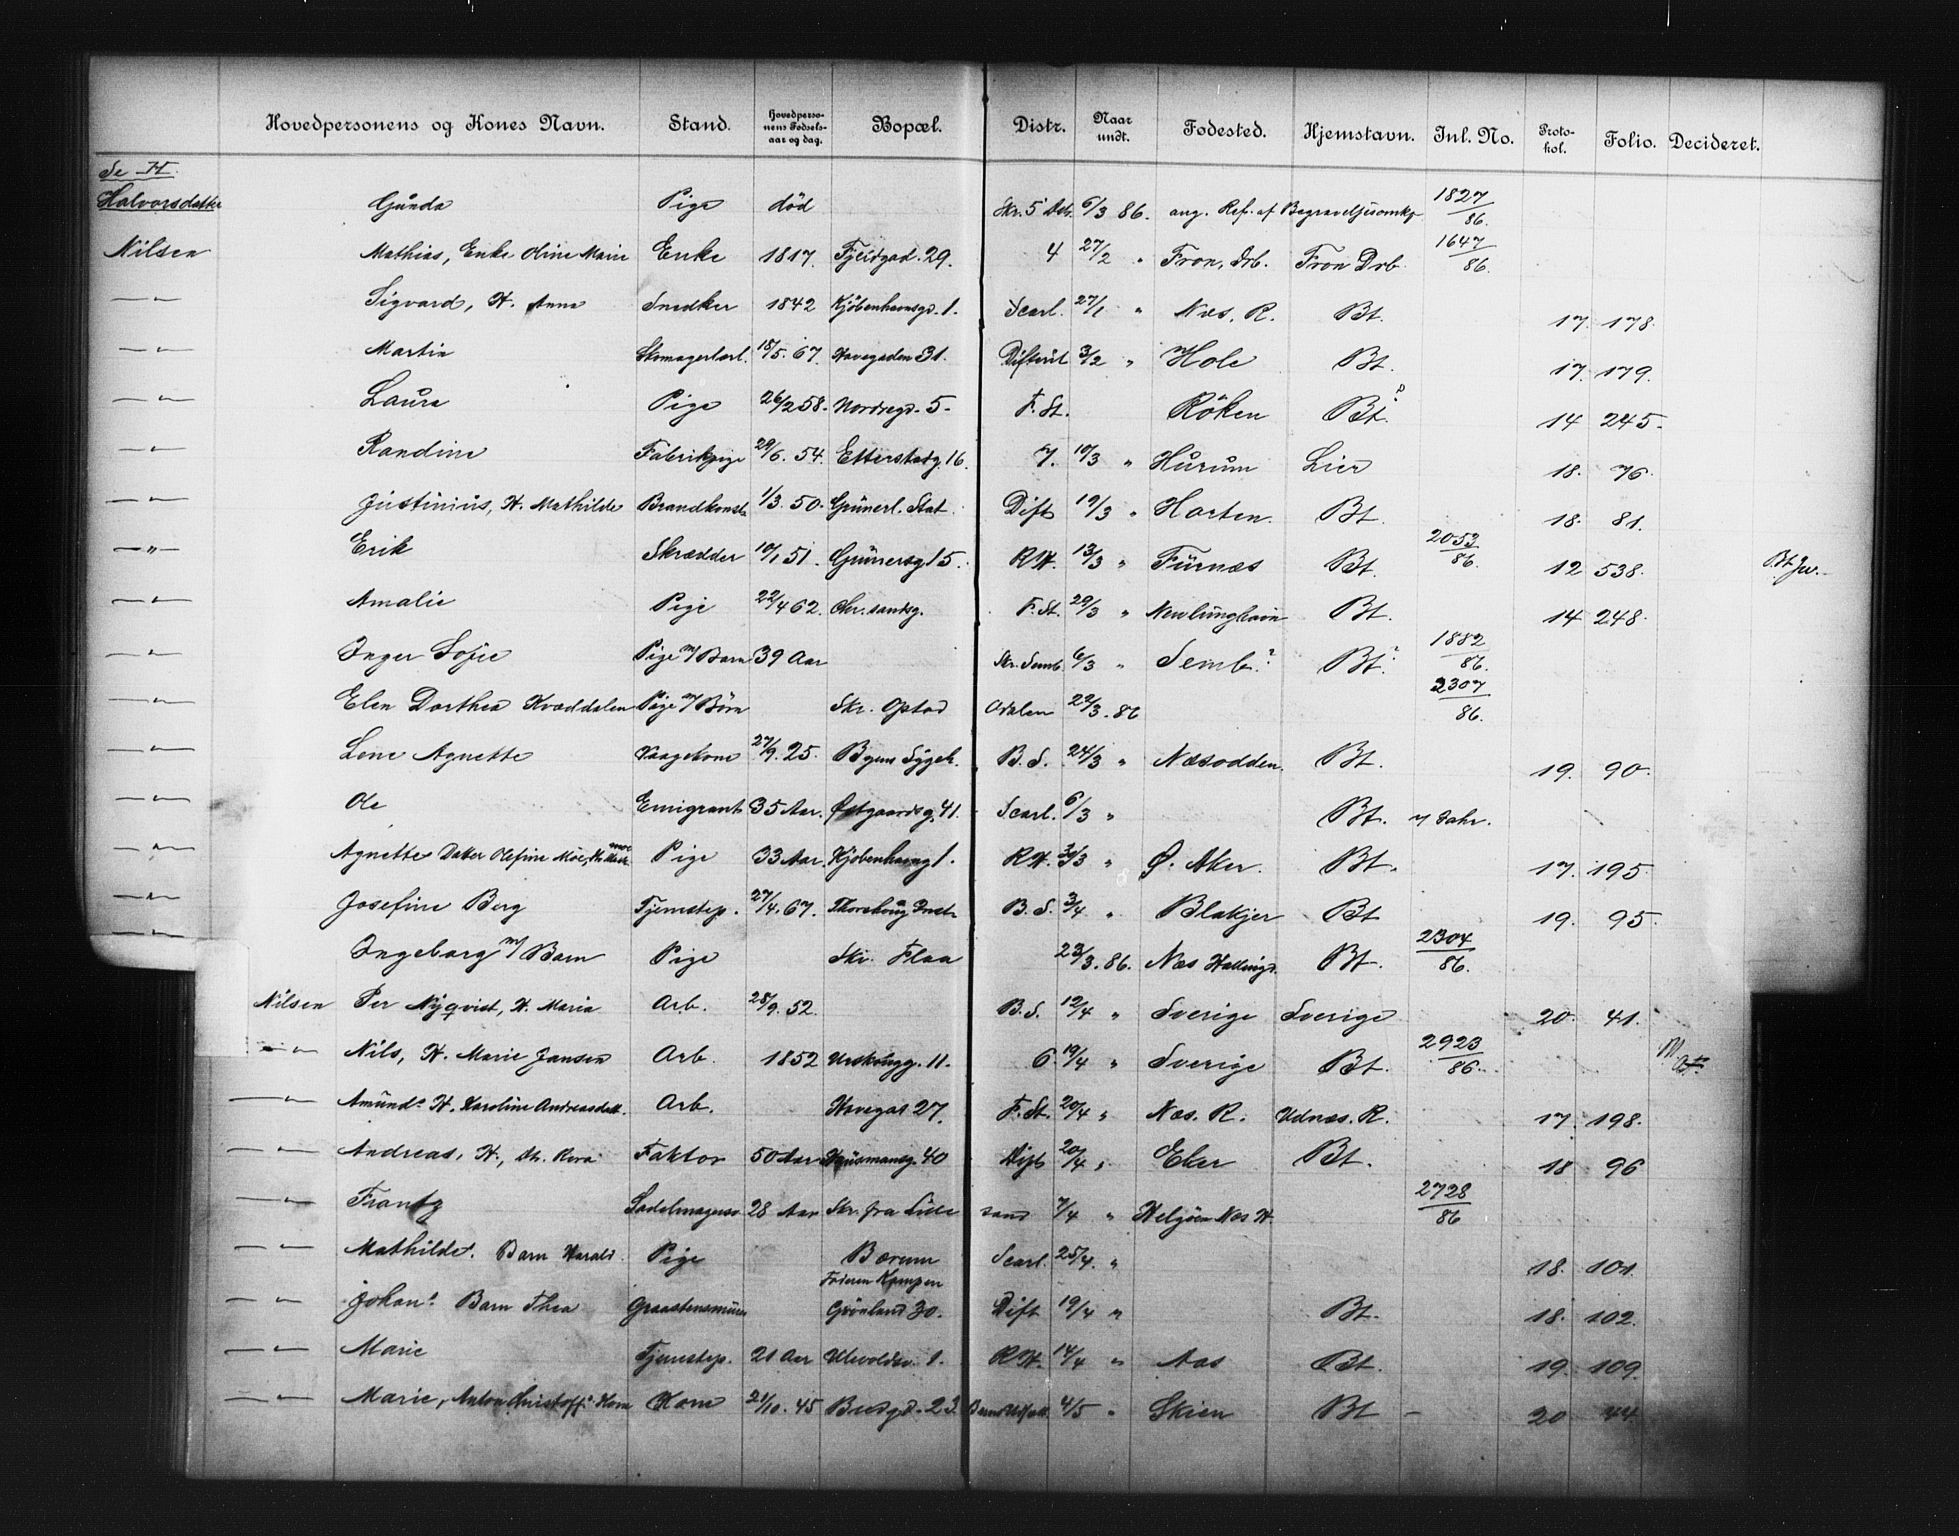 Hovedpersonens og Kones Navn. Stand. Hovedpersonens Fødselsaar og dag. Bopæl. Distr. Naar undt. Fødested. Hjemstavn. Inl. No. Protokol. Folio. Decideret.
Se H.
Halvorsdatter Gunda Pige død Skr. 5 6/3 86. ang. Ref. af 1827/86.
Nilsen Mathias, Enke Oline Marie Enke 1817. 29. 4 27/2 " Fron, Drb. Fron Drb. 1647/86.
— " — Sigvard, H. Anna Snedker 1842 Kjøbenhavnsgd. 1. Scarl. 27/1 " Næs. R. Bt. 17. 178.
— " — Martin Skomagerlærl. 18/5. 67. Havegaden 31. 3/2 " Hole Bt. 17. 179.
— " — Laura Pige 26/2 58. Nordregd. 5. F. St. Röken Bt. ? 14 245.
— " — Randine Fabrikpige 29/6. 54. Etterstadg. 16. 7. 10/3 " Hurum Lier 18. 76.
— " — Justinius, H. Mathilde Brandkonst. 1/3. 50. Grünerl. Stat. Dift 19/3 " Horten. Bt. 18. 81.
— " — Erik Skrædder 10/1 51. Grünersg 15. R H. 13/3 " Furnæs Bt. 2053/86. 12 538.
— " — Amalie Pige 22/4 62. Chr. sandsg. F. St. 29/3 " Bt. 14 248.
— " — Inger Sofie Pige m/ Barn 39 Aar Skr. Semb. 6/3 " Semb. ? Bt. ? 1882/86.
— " — Elen Dorthea Kvæddalen Pige m/ Børn Skr. Opstad Odalen 29/3. 86 2307/86.
— " — Lene Agnette Vaagekone 27/9. 25. Byens Sygeh. B. S. 24/3 " Næsodden. Bt. 19. 90.
— " — Ole Emigrant 35 Aar. Østgaardsg. 41. Scarl. 6/3 " Bt. 7 Sahr.
— " — Agnette Olefine Moe, Pige 33 Aar. Kjøbenhavng 1. R H. " Ø. Aker. Bt. 17. 195.
— " — Josefine Berg Tjenestep. 27/4. 67. Thorshoug B. S. 3/4 " Blakjer Bt 19. 95.
— " — Ingeborg m/ Barn Pige Skr. Flaa 23/3. 86. Næs Hallingd. Bt. 2304/86.
Nilsen Per Nyqvist, H. Maria Arb. 28/9. 52. B. S. 12/4 " Sverige Sverige 20. 41.
— " — Nils, H. Marie Jansen Arb. 1852 Urskougg. 11. 6. 19/4 " Sverige Bt. 2923/86.
— " — Amund H. Karoline Andreasdatt. Arb. Havegat 27. F. St. 20/4 " Næs. R. Udnæs. R. 17. 198.
— " — Andreas, H., Faktor 50 Aar Hausmansg. 40 Dift 20/4 " Eker Bt. 18 96
— " — Frantz Sadelmagersv. 28 Aar Skr. fra Lille sand 7/4 " Helgøen Næs H. 2728/86
— " — Mathilde. Barn Harald. Pige Bærum Scarl. 25/4. " 18. 101.
— " — Johan. Barn Thea Kampen Grønland 30. Dift 19/4 " Bt. 18. 102.
— " — Marie Tjenestep. 21 Aar Ulevoldsv. 1. R H. 14/4 " Aas Bt. 19. 109.
— " — Marie, Anton Kone Kone 21/10. 45 23. 4/5 " Skien Bt. — 20 44